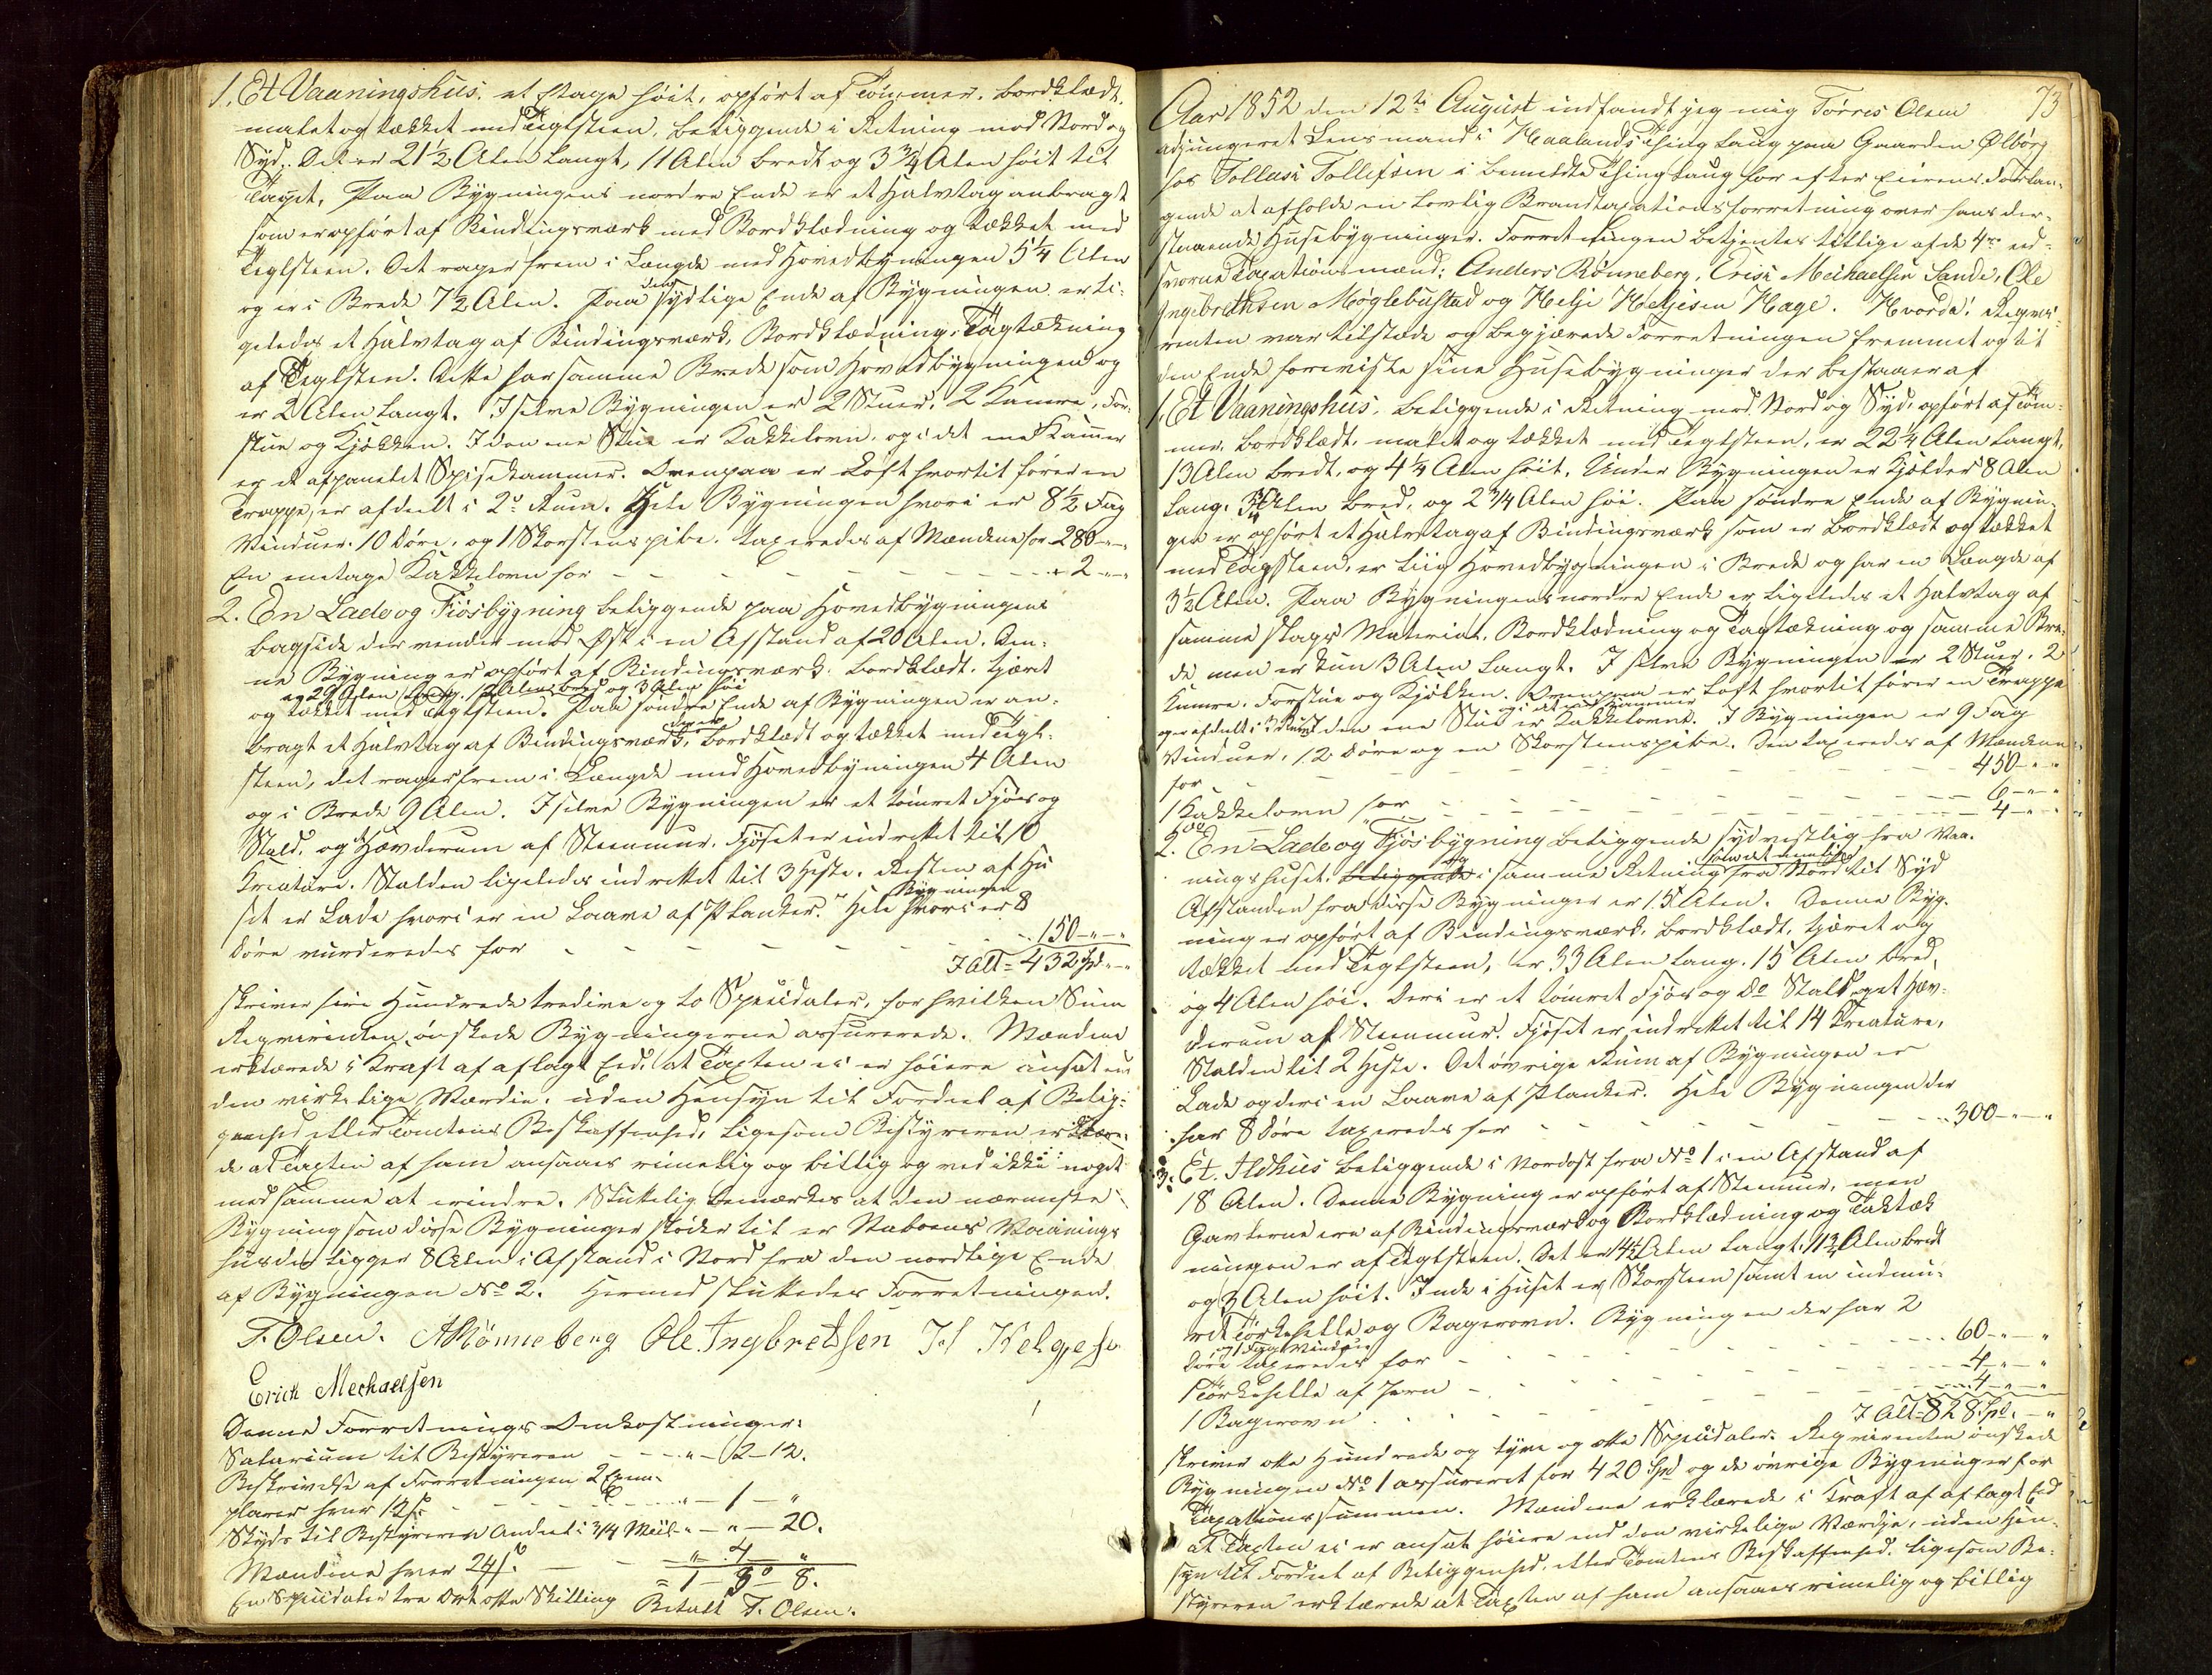 1. Et Vaaningshus, et Etage høit, opført af Tømmer, bordklædt,
malet og tækket med Teglsteen, beliggende i Retning mod Nord og
Syd. Det er 21 1/2 Alen langt, 11 Alen bredt og 3 3/4 Alen høit til
Taget. Paa Bygningens nordre Ende er et Halvtag anbragt
som er opført af Bindingsværk med Bordklædning og tækket med
Teglsteen. Det rager frem i Længde med Hovedbygningen 5 1/4 Alen
og er i Brede 7 1/2 Alen. Paa den sydlige Ende af Bygningen er li-
geledes et Halvtag af Bindingsværk, Bordklædning, Tagtækning
af Teglsten. Dette har samme Brede som Hovedbygningen og
er 2 Alen langt. I selve Bygningen er 2 Stuer, 2 Kamre, For-
stue og Kjøkken. I den ene Stue er Kakkelovn, og i det ene Kammer
er et afpanelet Spisekammer. Ovenpaa er Loft hvortil fører en
Trappe, er afdeelt i 2de Rum. Hele Bygningen hvori er 8 1/2 Fag
Vinduer, 10 Døre, og 1 Skorstenspibe, taxeredes af Mændene for 280 - " - "
En enetages Kakkelovn for - - - - - - 2 - " - "
2. En Lade og Fiøsbygning beliggende paa Hovedbygningens
bagside der vender mod Øst i en Afstand af 20 Alen. Den-
ne Bygning er opført af Bindingsværk, bordklædt, tjæret
er 29 Alen lang, 12 Alen bred og 3 Alen høi
og tækket med Teglsteen. Paa søndre Ende af Bygningen er an-
bragt et Halvtag af Bindingsværk, der er bordklædt og tækket med Tegl-
steen, det rager frem i Længde med Hovedbyningen 4 Alen
og i Brede 9 Alen. I selve Bygningen er et tømret Fjøs og
Stald, og et Hævderum af Steenmur. Fjøset er indrettet til 10
Kreature. Stalden ligeledes indrettet til 3 Heste. Resten af Hu-
set er Lade hvori er en Laave af Planker. Hele Bygningen hvori er 8
Døre vurderedes for - - - - - 150 - " - "
I Alt = 432 Spd - " - "
skriver fire Hundrede tredive og to Speciedaler, for hvilken Sum
Reqvirenten ønskede Bygningerne assurerede. Mændene
erklærede i Kraft af aflagt Eed, at Taxten ei er høiere ansat end
den virkelige Værdie, uden Hensyn til Fordeel af Belig-
genhed eller Tomtens Beskaffenhed, ligesom Bestyreren erklære-
de at Taxten af ham ansaaes rimelig og billig og ved ikke noget
mod samme at erindre. Sluttelig bemærkes at den nærmeste
Bygning som disse Bygninger støder til er Naboens Vaanings-
hus der ligger 8 Alen i Afstand i Nord fra den nordlige Ende
af Bygningen No 2. Hermed sluttedes Forretningen.
T. Olsen. A Rönneberg Ole Ingbretsen H Helgesen
Erich Mechaelsen
Denne Forretnings Omkostninger:
Salarium til Bestyreren - - - " - 2 - 12.
Beskrivelse af Forretningen 2 Exem-
plarer hver 12 s - - - - " - 1 - "
Skyds til Bestyreren Andeel i 3/4 Miil - " - " - 20.
Mændene hver 24 s. - - " - 4 - "
= 1 - 3 - 8.
En Speciedaler tre Ort otte Skilling Betalt T. Olsen.
73
Aar 1852 den 12te August indfandt jeg mig Tørres Olsen
adjungeret Lensmand i Haalands Thinglaug paa Gaarden Ølbørg
hos Tollasi Tollefsen i bemeldte Thinglaug for efter Eierens Forlan-
gende at afholde en lovlig Brandtaxationsforretning over hans der-
staaende Husebygninger. Forretningen betjentes tillige af de 4re eed-
svorne Taxationsmænd: Anders Rönneberg, Erisi Meihaelsen Sande, Ole
Ingebrethsen Møglebustad og Helje Heljesen Hage. Hvorda! Reqvi-
renten var tilstæde og begjærede Forretningen fremmet og til
den Ende foreviste sine Husebygninger der bestaaer af
1. Et Vaaningshus, beliggende i Retning mod Nord og Syd, opført af Tøm-
mer, bordklædt, malet og tækket med Teglsteen, er 22 1/4 Alen langt,
13 Alen bredt, og 4 1/4 Alen høit. Under Bygningen er Kjælder 8 Alen
lang, Alen bred, og 2 3/4 Alen høi. Paa søndre Ende af Bygnin-
gen er opført et Halvtag af Bindingsværk som er bordklædt og tækket
med Tagsteen, er liig Hovedbygningen i Brede og har en Længde af
3 1/2 Alen. Paa Bygningens nordre Ende er ligeledes et Halvtag af
samme slags Material, Bordklædning og Tagtækning og samme Bre-
de men er kun 3 Alen langt. I selve Bygningen er 2 Stuer, 2
Kamre, Forstue og Kjøkken. Ovenpaa er Loft hvortil fører en Trappe
og i et Kammer
og er afdeelt i 3 Rum. I den ene Stue er Kakkelovn. I Bygningen er 9 Fag
Vinduer, 12 Døre og en Skorsteenspibe. Den taxeredes af Mændene
for - - - - - 450 - " - "
1 Kakkelovn for - - - - - 6 - " - "
1 do - - - - - 4 - " - "
2. En Lade og Fjøsbygning beliggende sydvestlig fra Vaa-
ningshuset, og i samme Retning som det nemlig fra Nord til Syd
Afstanden fra disse Bygninger er 15 Alen. Denne Byg-
ning er opført af Bindingsværk, bordklædt, tjæret og
tækket med Teglsteen, er 33 Alen lang, 15 Alen bred,
og 4 Alen høi. Deri er et tømret Fjøs og Do Stald, og et Hæv-
derum af Steenmur. Fjøset er indrettet til 14 Kreature,
Stalden til 2 Heste. Det øvrige Rum af Bygningen er
Lade og deri en Laave af Planker. Hele Bygningen der
har 8 Døre taxeredes for - - - - - 300 - " - "
3. Et Ildhus beliggende i Nordost fra No 1 i en Afstand af
18 Alen. Denne Bygning er opført af Steenmur, men
Gavlerne ere af Bindingsværk og Bordklædning og Taktæk-
ningen er af Teglsteen. Det er 14 1/2 Alen langt, 11 3/4 Alen bredt
og 3 Alen høit. Inde i Huset er Skorsteen samt en indmu-
ret Tørkehelle og Bagerovn. Bygningen der har 2
og 1 Fag Vinduer
Døre taxeredes for - - - - - 60 - " - "
1 Tørkehelle af Jern - - - - - 4 - " - "
1 Bagerovn - - - - - 4 - " - "
I Alt = 828 Spd. - "
skriver otte Hundrede og tyve og otte Speciedaler. Reqvirenten ønskede
Bygningen No 1 assureret for 420 Spd og de øvrige Bygninger for
Taxationssummen. Mændene erklærede i Kraft af aflagt Eed
at Taxten ei er ansat høiere end den virkelige Værdie, uden Hen-
syn til Fordeel af Beliggenhed, eller Tomtens Beskaffenhed. ligesom Be-
styreren erklærede at Taxten af ham ansaaes rimelig og billig